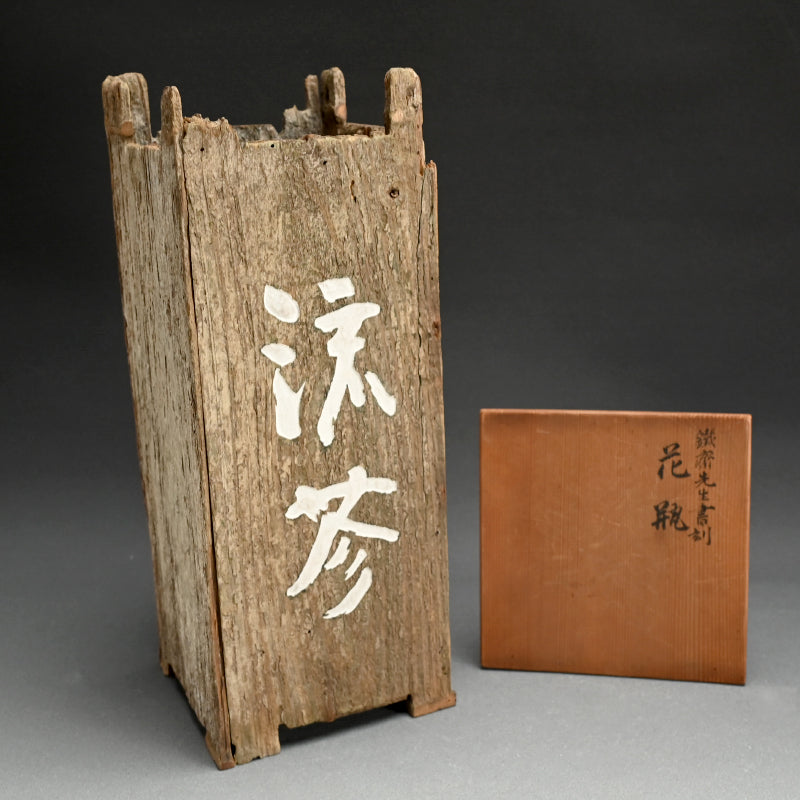 流芬
鐵斎先生書刻
花瓶